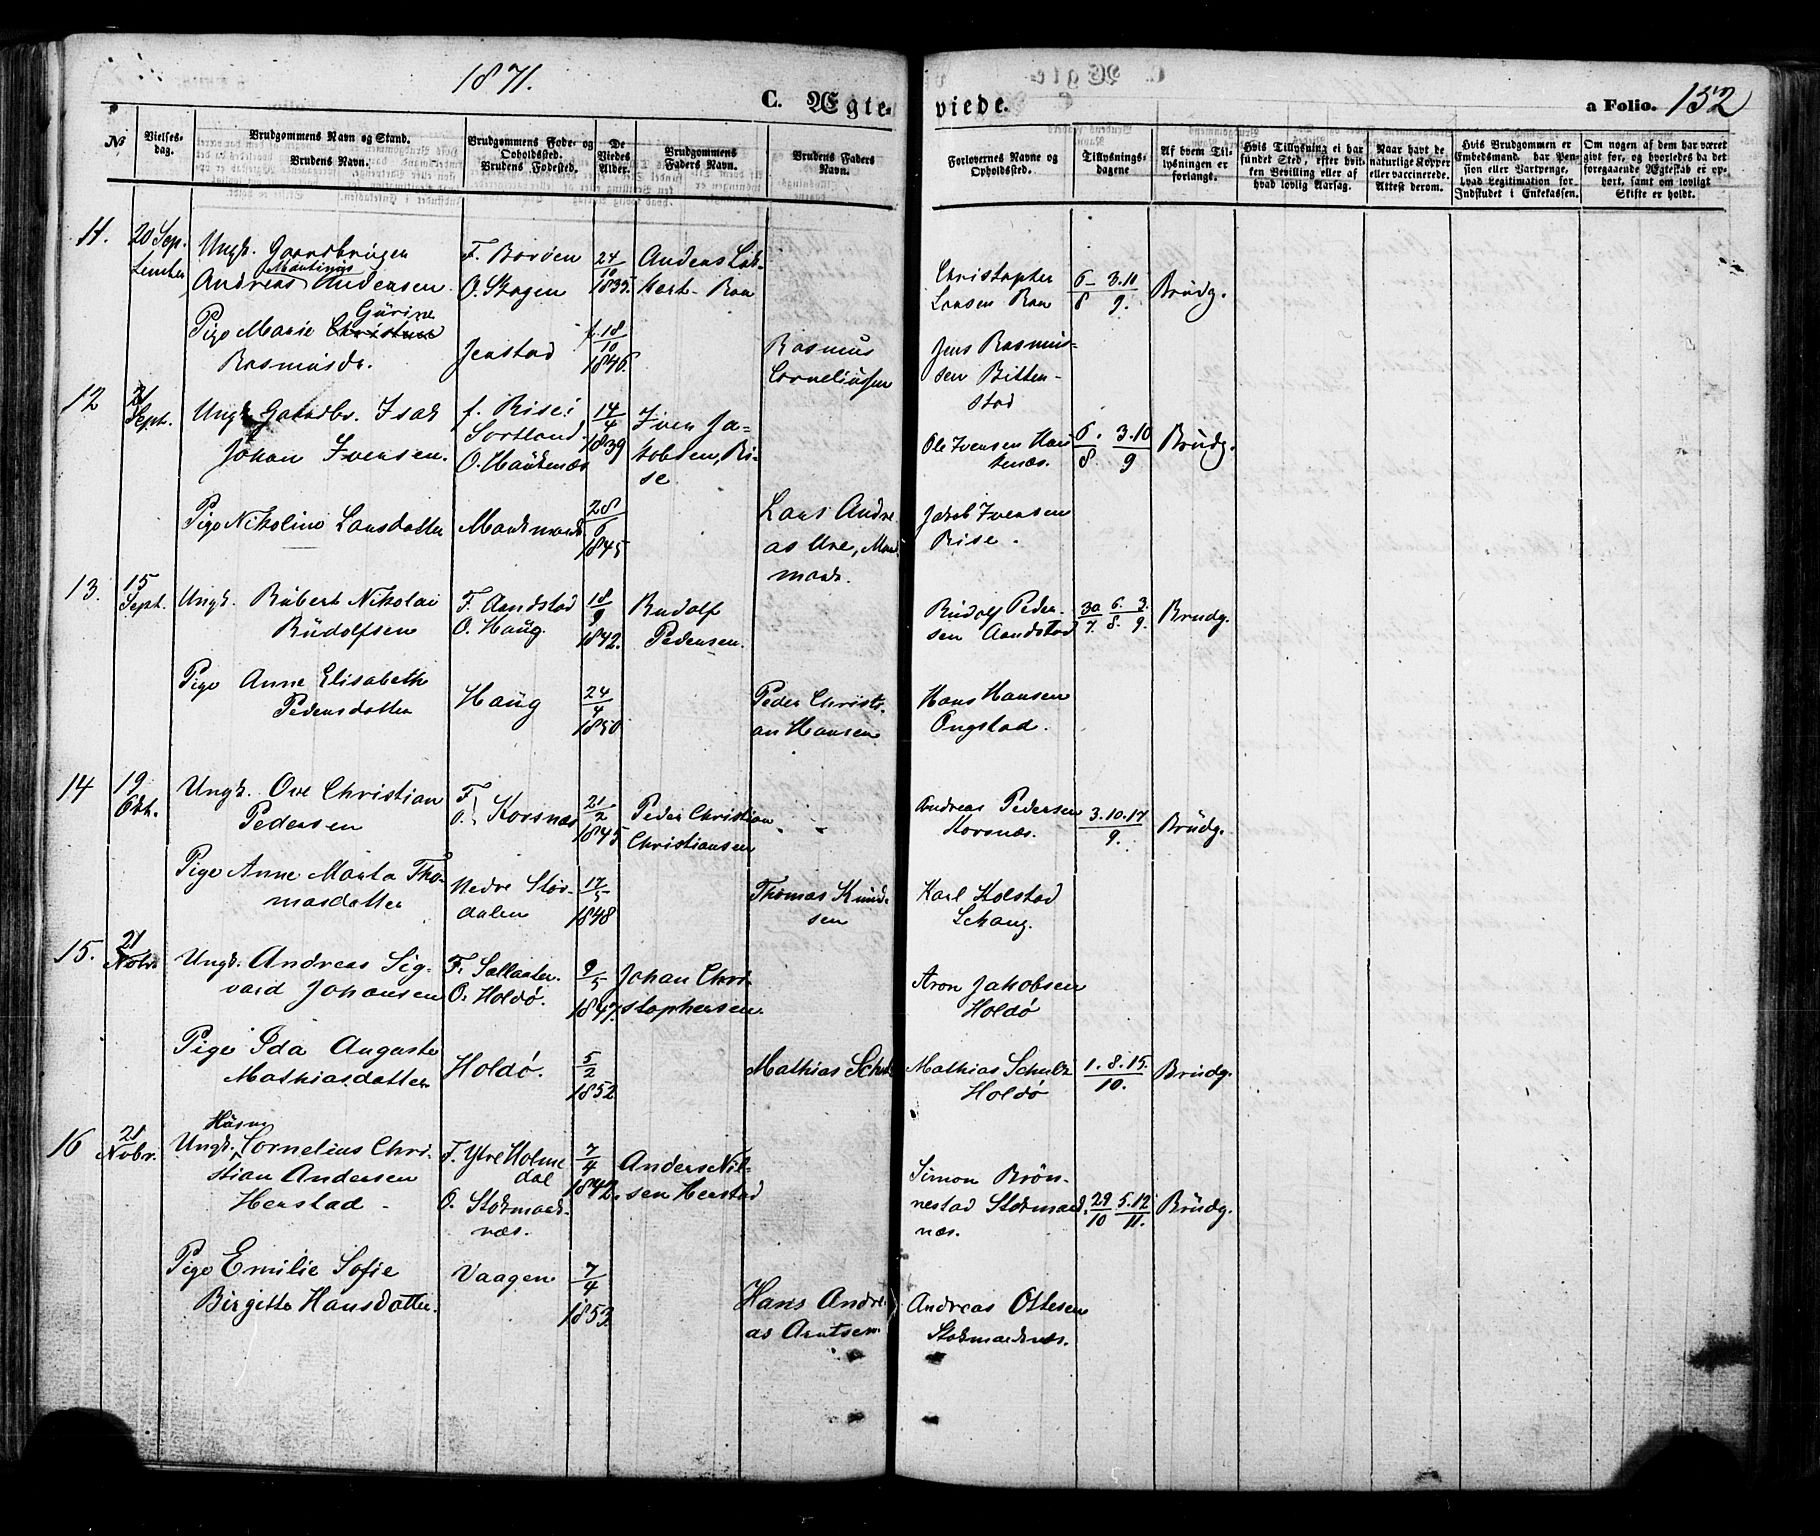 1871.
C. Ægte-
viede.
a Folio. 152
No
Vielses-
dag.
Brudgommens Navn og Stand.
Brudens Navn.
Brudgommens Føde- og
Opholdssted.
Brudens Fødested.
De
Viedes
Alder.
Brudgommens
Faders Navn.
Brudens Faders
Navn.
Forlovernes Navne og
Opholdssted.
Tillysnings-
dagene
Af hvem Til-
lysningen er
forlangt.
Hvis Tillysning ei har
fundet Sted, efter hvil-
ken Bevilling eller af
hvad lovlig Aarsag.
Naar havt de
naturlige Kopper
eller vaccinerede.
Attest derom.
Hvis Brudgommen er
Embedsmand, har Pen-
sion eller Vartpenge,
hvad Legitimation for
Indskudet i Enkekassen.
Om nogen af dem har været
givt for, og hvorledes da det
foregaaende Ægteskab er op-
hørt, samt om lovligt
Skifte er holdt.
11.
20 Sep-
tember
Ungk. Gaardbruger
Martinus
Andreas Andersen
F. Barøen
O. Skagen
24/10
1835.
Anders Lok-
kert-Ran
Christopher
Larsen Ran
6/8 - 3.10/9.
Brudg.
Gurine
Pige Marie Christine
Rasmusdr.
Jenstad
f. 18/10
1846.
Rasmus
Corneliussen
Jens Rasmus-
sen Bitten-
stad
12
21
Sept.
Ungk. Gaardbr. Isak
Johan Iversen.
f. Rise i
Sortland.
O. Haukenæs
14/4
1839
Iver Ja-
kobsen, Ri-
se
Ole Iversen Hau
kenæs.
6./8. 3.10/9
Brudg.
Pige Nikoline Larsdatter
Markmark
28/6
1845
Lars Andre
as Ure, Mark
mark.
Jakob Iversen
Rise.
13.
15
Sept.
Ungk. Rubert Nikolai
Rudolfsen
F. Aandstad
O. Haug.
18/9
1842.
Rudolf
Pedersen.
Rudolf Peder-
sen Aandstad
30/7. 6./8. 3./9.
Brudg.
Pige Anne Elisabeth
Pedersdatter
Haug
24/4
1850
Peder Christi-
an Hansen
Hans Hansen
Ongstad.
14
19
Okt.
Ungk. Ove Christian
Pedersen
F.
O. Korsnæs
21/2
1845
Peder Christian
Christiansen
Andreas Pedersen
Korsnæs.
3.10.17/9.
Brudg.
Pige Anne Marta Tho-
masdatter
Nedre Stør-
dalen
17/5
1848
Thomas Knud-
sen
Karl Holstad
Lekang.
15.
21
Nobr
Ungk. Andreas Sig-
vard Johansen
F. Sallaater.
O. Holdø.
9/5
1847.
Johan Chri-
stophersen.
Aron Jakobsen
Holdø
Pige Ida Auguste
Mathiasdatter
Holdø.
5/2
1852
Mathias Schulz
Mathias Schulz
Holdø
1.8.15./10.
Brudg.
16
21
Nobr.
Husm.
Ungk. Cornelius Chri-
stian Andersen
Herstad
F. Ytre Holme
dal
O. Stokmark-
næs.
7/4
1842.
Anders Nil-
sen Herstad
Simon Brøn-
nestad Stokmark
næs.
29/10 5.12/11.
Brudg.
Pige Emilie Sofie
Birgitte Hansdatter.
Vaagen
7/4
1853.
Hans Andre
as Arntsen
Andreas Ottesen
Stokmarknæs.